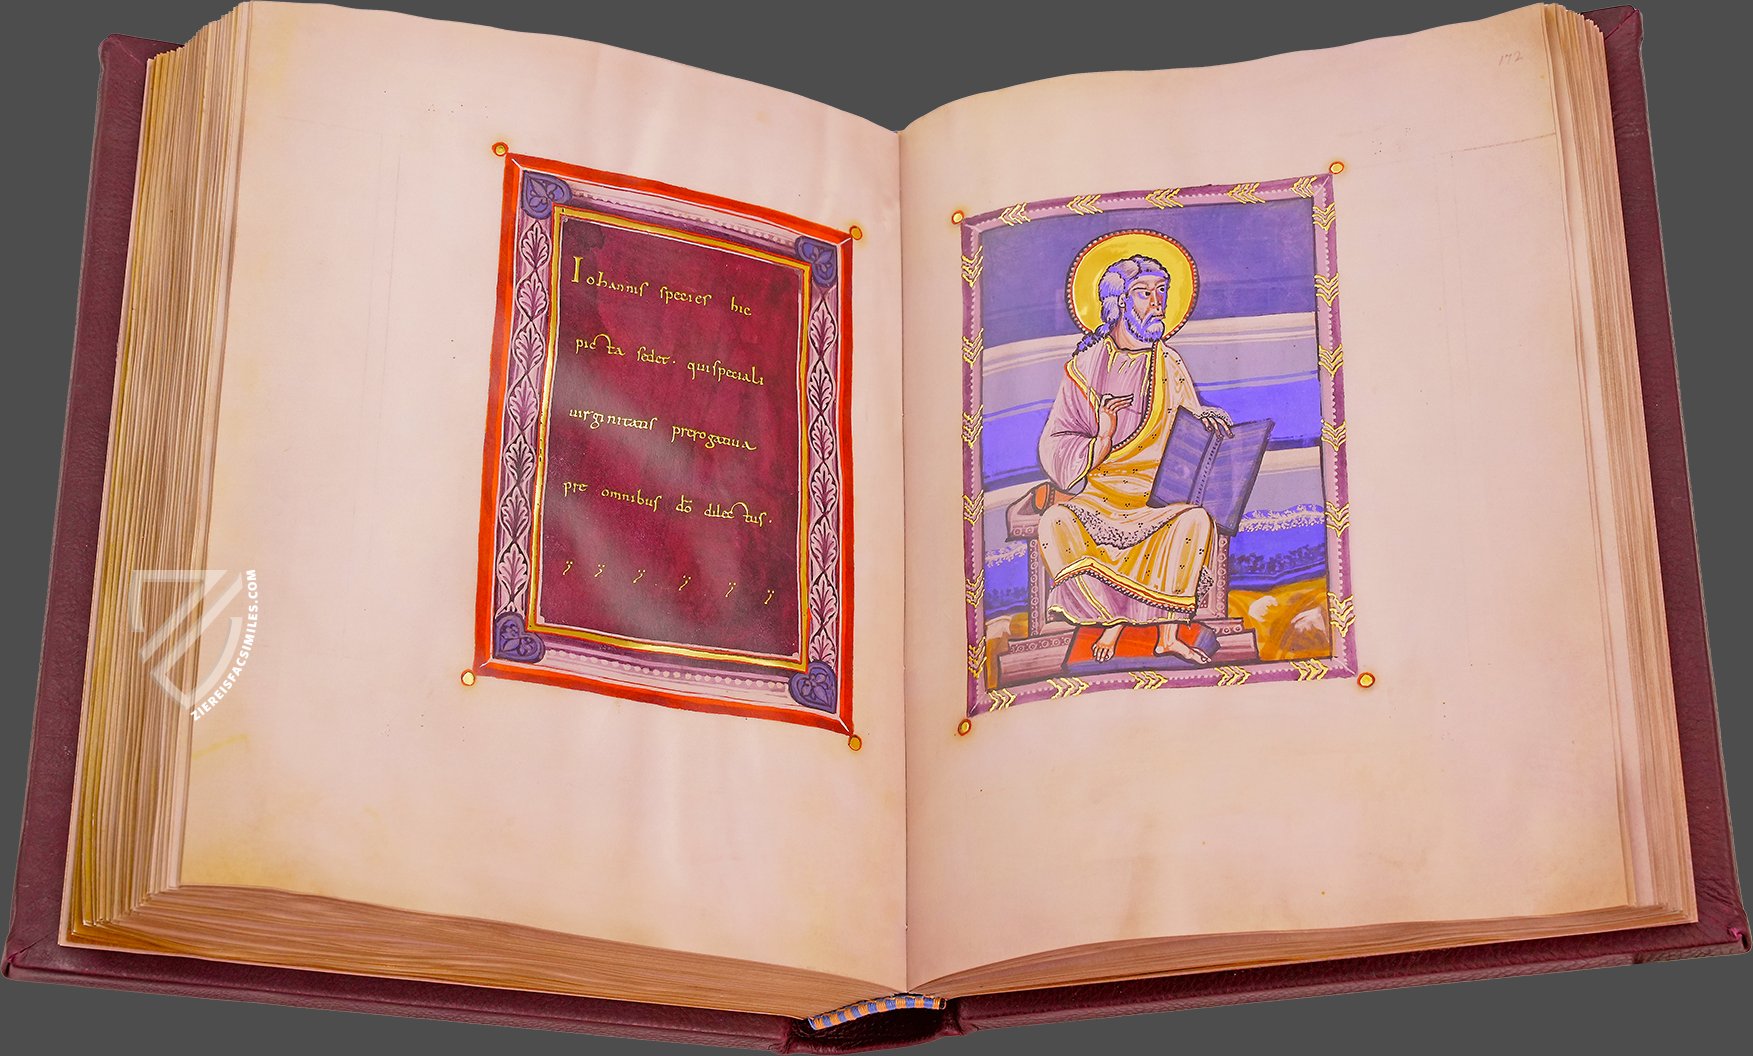 Iohannis species hic
picta sedet. qui speciali
uirginitatis prerogatiua
pre omnibus dō dilectus.
172
ZIEREISFACSIMILES.COM